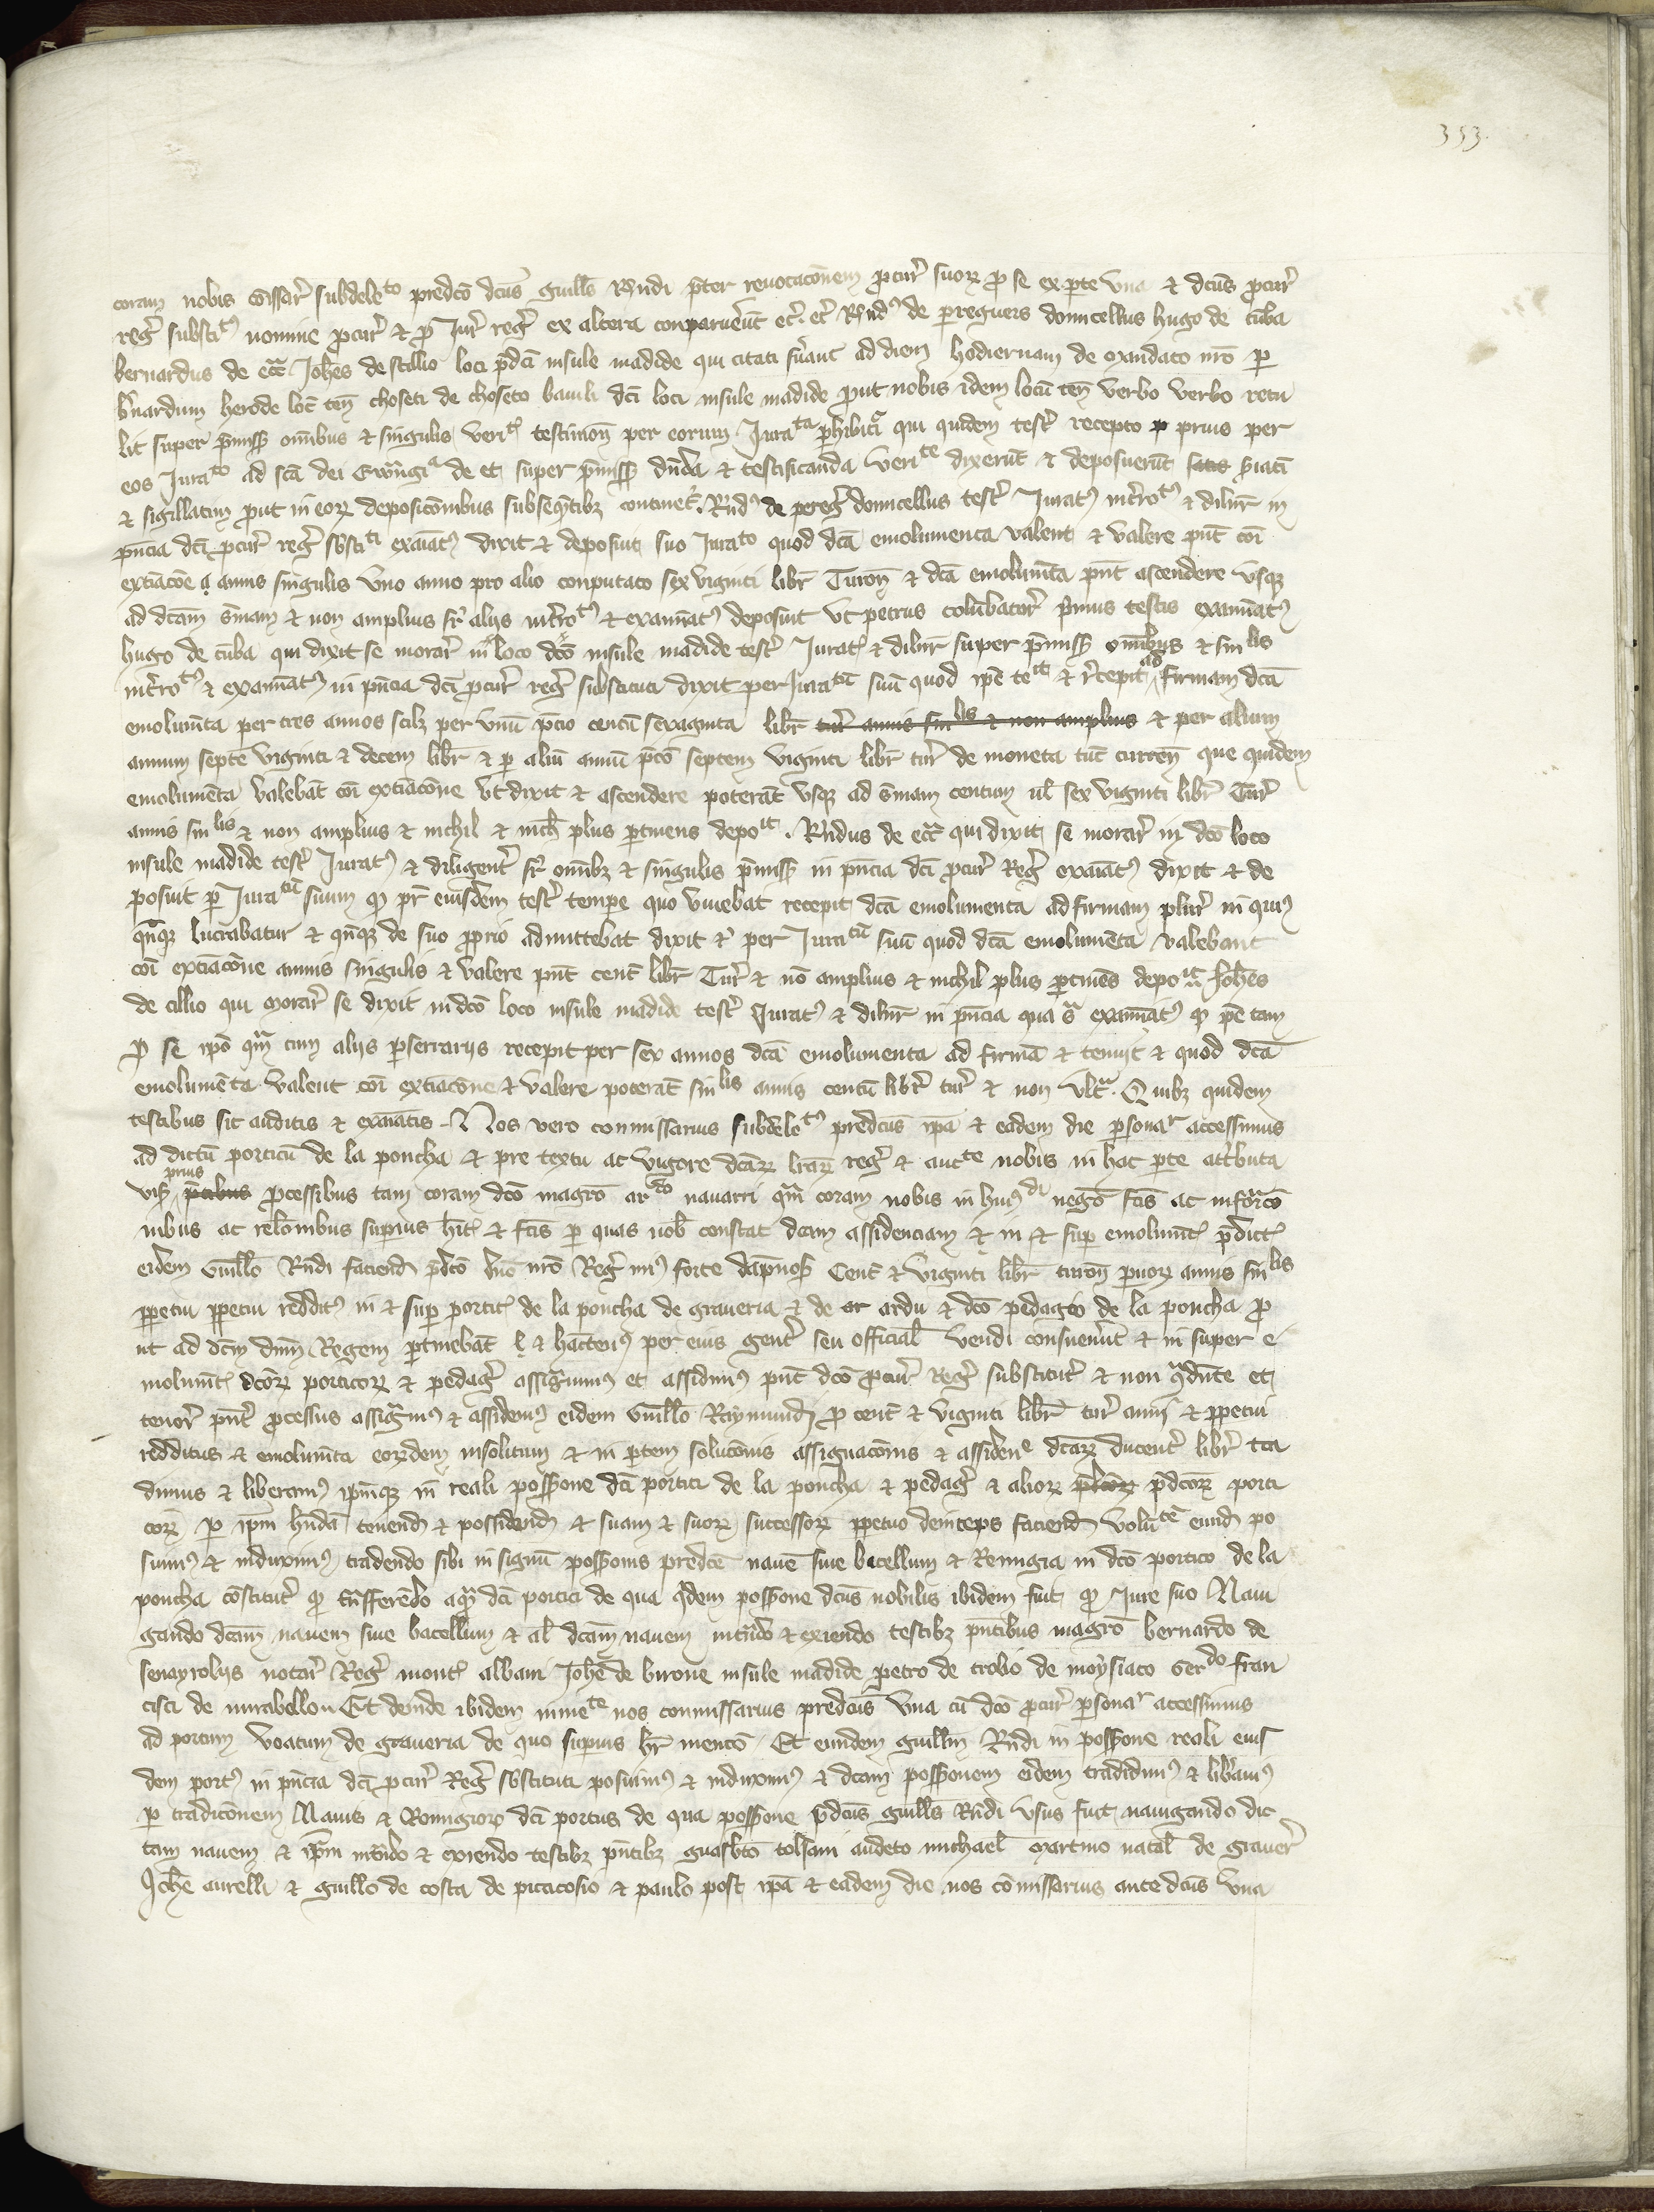 353.
coram nobis com̄issar̄ subdele^to predc̄o dc̄us guill̄s Rn̄di pret̄er reuocac̄onem procur̄ suor̄ pro se ex parte vna et dc̄us procur̄
reḡ substit^9 nomine procur̄ et pro Jur̄ reḡ ex altera conparuer̄ūt et̄c. et̄c Rn̄d^9 de peregners domicellus hugo de cūba
bernardus de Joh̄es de stillio loci p̄dc̄i insule madide qui citati fūant ad diem hodiernam de mandato nr̄o per
b̄nardum herode loc̄ ten̄ choseti de choseto bauili dc̄i loci insule madide prout nobis idem locū ten̄ verbo verbo retu
lit super p̄miss̄ om̄ibus et singulis verit̄ testimon̄ per eorum Jura^ta perhibit̄a qui quidem test̄ recepto p prius per
eos Jura^to ad sc̄a dei Ewāngi^a de et super p̄miss̄ dn̄da et testificanda veri^te dixerūt et deposuerūt
et sigillatim prout in eor̄ deposic̄onibus subseq̄ntibz continet̄. Rn̄d^9 de pereḡ domicellus test̄ Jurat^9 int̄ro^t9 et dilin̄r in
pn̄cia dc̄i procur̄ reḡ sbsti^ti exaīat^9 dixit et deposuit suo Jura^to quod dc̄a emolumenta valent et valere pn̄t coī
extiac̄oe a annis singulis vno anno pro alio conputato sex viginti libr̄ Turon̄ et dc̄a emolum̄ta pn̄t ascendere vsqz
ad dc̄am sūmam et non amplius sr̄ alijs int̄ro^t9 et examīat^9 deposuit vt petrus colūbator̄ primus testis examīat^9
hugo de cūba qui dixit se morar̄ in loco dc̄o insule madide test̄ Jurat^9 et dilin̄r super p̄miss̄ om̄ibus et sin^lis
int̄ro^t9 et examīat^9 in pn̄cia dc̄i procur̄ reḡ substituti dixit per Jura^tū suū quod ip̄e te^it et r̄cepit ad firmam dc̄a
emolum̄ta per tres annos scilz per vnū p̄cio centū sexaginta libr̄ tur̄ annis sin^lis et non amplius et per alium
annum septē viginti et decem libr̄ et per aliū annū p̄co septem viginti libr̄ tur̄ de moneta tūc curren̄ que quidem
emolumēta valebāt coī extiac̄one vt dixit et ascendere poterāt vsqz ad sūmam centum ul̄ sex viginti libr̄ Tur̄
annis sin^lis et non amplius et nichil et nich̄ plus pertinens depo^it. Rn̄dus de qui dixit se morar̄ in dc̄o loco
insule madide test̄ Jurat^9 et diligent̄ sr̄ om̄ibz et singulis p̄miss̄ in pn̄cia dc̄i procur̄ Reḡ exaīat^9 dixit et de
posuit per Jura^tū suum qd pr̄ eiusdem test̄ tempe quo viuebat recepit dc̄a emolumenta ad firmam plur̄ in quib9
qn̄qz lucrabatur et qn̄qz de suo proprio admittebat dixit et̄ per Jura^tū suū quod dc̄a emolumēta valebant
coī extiac̄one annis singulis et valere pn̄t cent̄ libr̄ Tur̄ et nō amplius et nichil plus pertinēs depo^it Joh̄es
de cillio qui morar̄ se dixit in dc̄o loco insule madide test̄ Jurat^9 et dilin̄r in pn̄cia qua s̄ examīat^9 qd ip̄e tam
pro se ip̄o qm̄ cum alijs perserrarijs recepit per sex annos dc̄a emolumenta ad firmā et tenuit et quod dc̄a
emolumēta valent coī extiac̄one et valere poterāt sin^lis annis centū libr̄ tur̄ et non vlt̄^a. Quibz quidem
testibus sic auditis et exaīatis Nos vero commissarius subdele^t9 predc̄us ip̄a et eadem die persona^r accessimus
ad dictū porticū de la poncha et pre textu ac vigore dc̄ar̄ lr̄ar̄ reḡ et auc^te nobis in hac parte at̄tbuta
visis prius processibus tam coram dc̄o magr̄o ar^do nauarri qm̄ coram nobis in hui9^di nego fc̄is ac infor̄co
nibus ac relōnibus superius hit̄ et fc̄is per quas nob̄ constat dc̄am assidenciam et in et super emolumt̄ p̄dict̄
eidem Guill̄o Rn̄di faciend̄ p̄dc̄o dn̄o nr̄o Reḡ min9 forte dāpnos̄ Cent̄ et viginti libr̄ turon̄ paruor̄ annis sin^lis
perpetui perpetui reddit^9 in et super portic̄ de la poncha de graueria et de ar ardu et dc̄o pedagio de la poncha pro
ut ad dc̄m dn̄m Regem pertinebāt et hācten^9 per eius gent̄ seu official̄ vendi consueuer̄ūt et in super e
molumt̄ dc̄or̄ porticor̄ et pedaḡ assig̅uimus et assidim^9 pn̄t dc̄o procur̄ Reḡ substitut̄ et non q̄dn̄te et
tenor̄ pn̄t̄ processus assig̅m^9 et assidem^9 eidem Guill̄o Raymundi pro cent̄ et viginti libr̄ tur̄ anni et perpetui
redditus et emolum̄ta eor̄dem insolitum et in partem soluc̄onis assignac̄onis et assiden^e dc̄ar̄ ducent̄ libr̄ tra
dimus et liberam^9 ip̄mqz in reali poss̄ione dc̄i portici de la poncha et pedaḡ et alior̄ p̄dc̄or̄ porti
cor̄ per ip̄m hn̄dā tenend̄ et possidend̄ et suam et suor̄ successor̄ perpetuo deinceps faciend̄ volū^tē eund̄ po
suim^9 et induxim^9 tradendo sibi in signū poss̄ionis predc̄e nauē siue bacellum et Remigia in dc̄o portico de la
poncha cōstitut̄ tn̄fferēdo aquā dc̄i portici de qua q̄dem poss̄ione dc̄us nobilis ibidem fuit Jure suo Naui
gando dc̄am nauem siue bacellum et al̄ dc̄am nauem intrādo et exiendo testibz pn̄tibus magr̄o bernardo de
senayrolijs notar̄ Reḡ mont̄ albani Joh̄e de birone insule madide petro de trobo de moẏsiaco Ger^do fran
cisci de mirabellon Et deinde ibidem in^te nos commissarius predc̄us vna cū dc̄o procur̄ persona^r accessimus
ad portum voatum de graueria de quo superius hr̄ mentō Et eundem guill̄m Rn̄di in poss̄ione reali eius
dem port^9 in pn̄cia dc̄i procur̄ Reḡ sbstituti posuim^9 et induxim^9 et dc̄am poss̄ionem eidem tradidim^9 et lib̄auim^9
per tradic̄onem Nauis et Remigior̄ dc̄i portus de qua poss̄ione p̄dc̄us guill̄s Rn̄di vsus fuit nauigando dic
tam nauem et ip̄m int̄ndo et exiendo testibz pn̄tibz tolsani audeto michael̄ martino natal̄ de grauer̄
Joh̄e aurelli et guill̄o de costa de picacosio et paulo post ip̄a et eadem die nos cōmissarius ante dc̄us vna